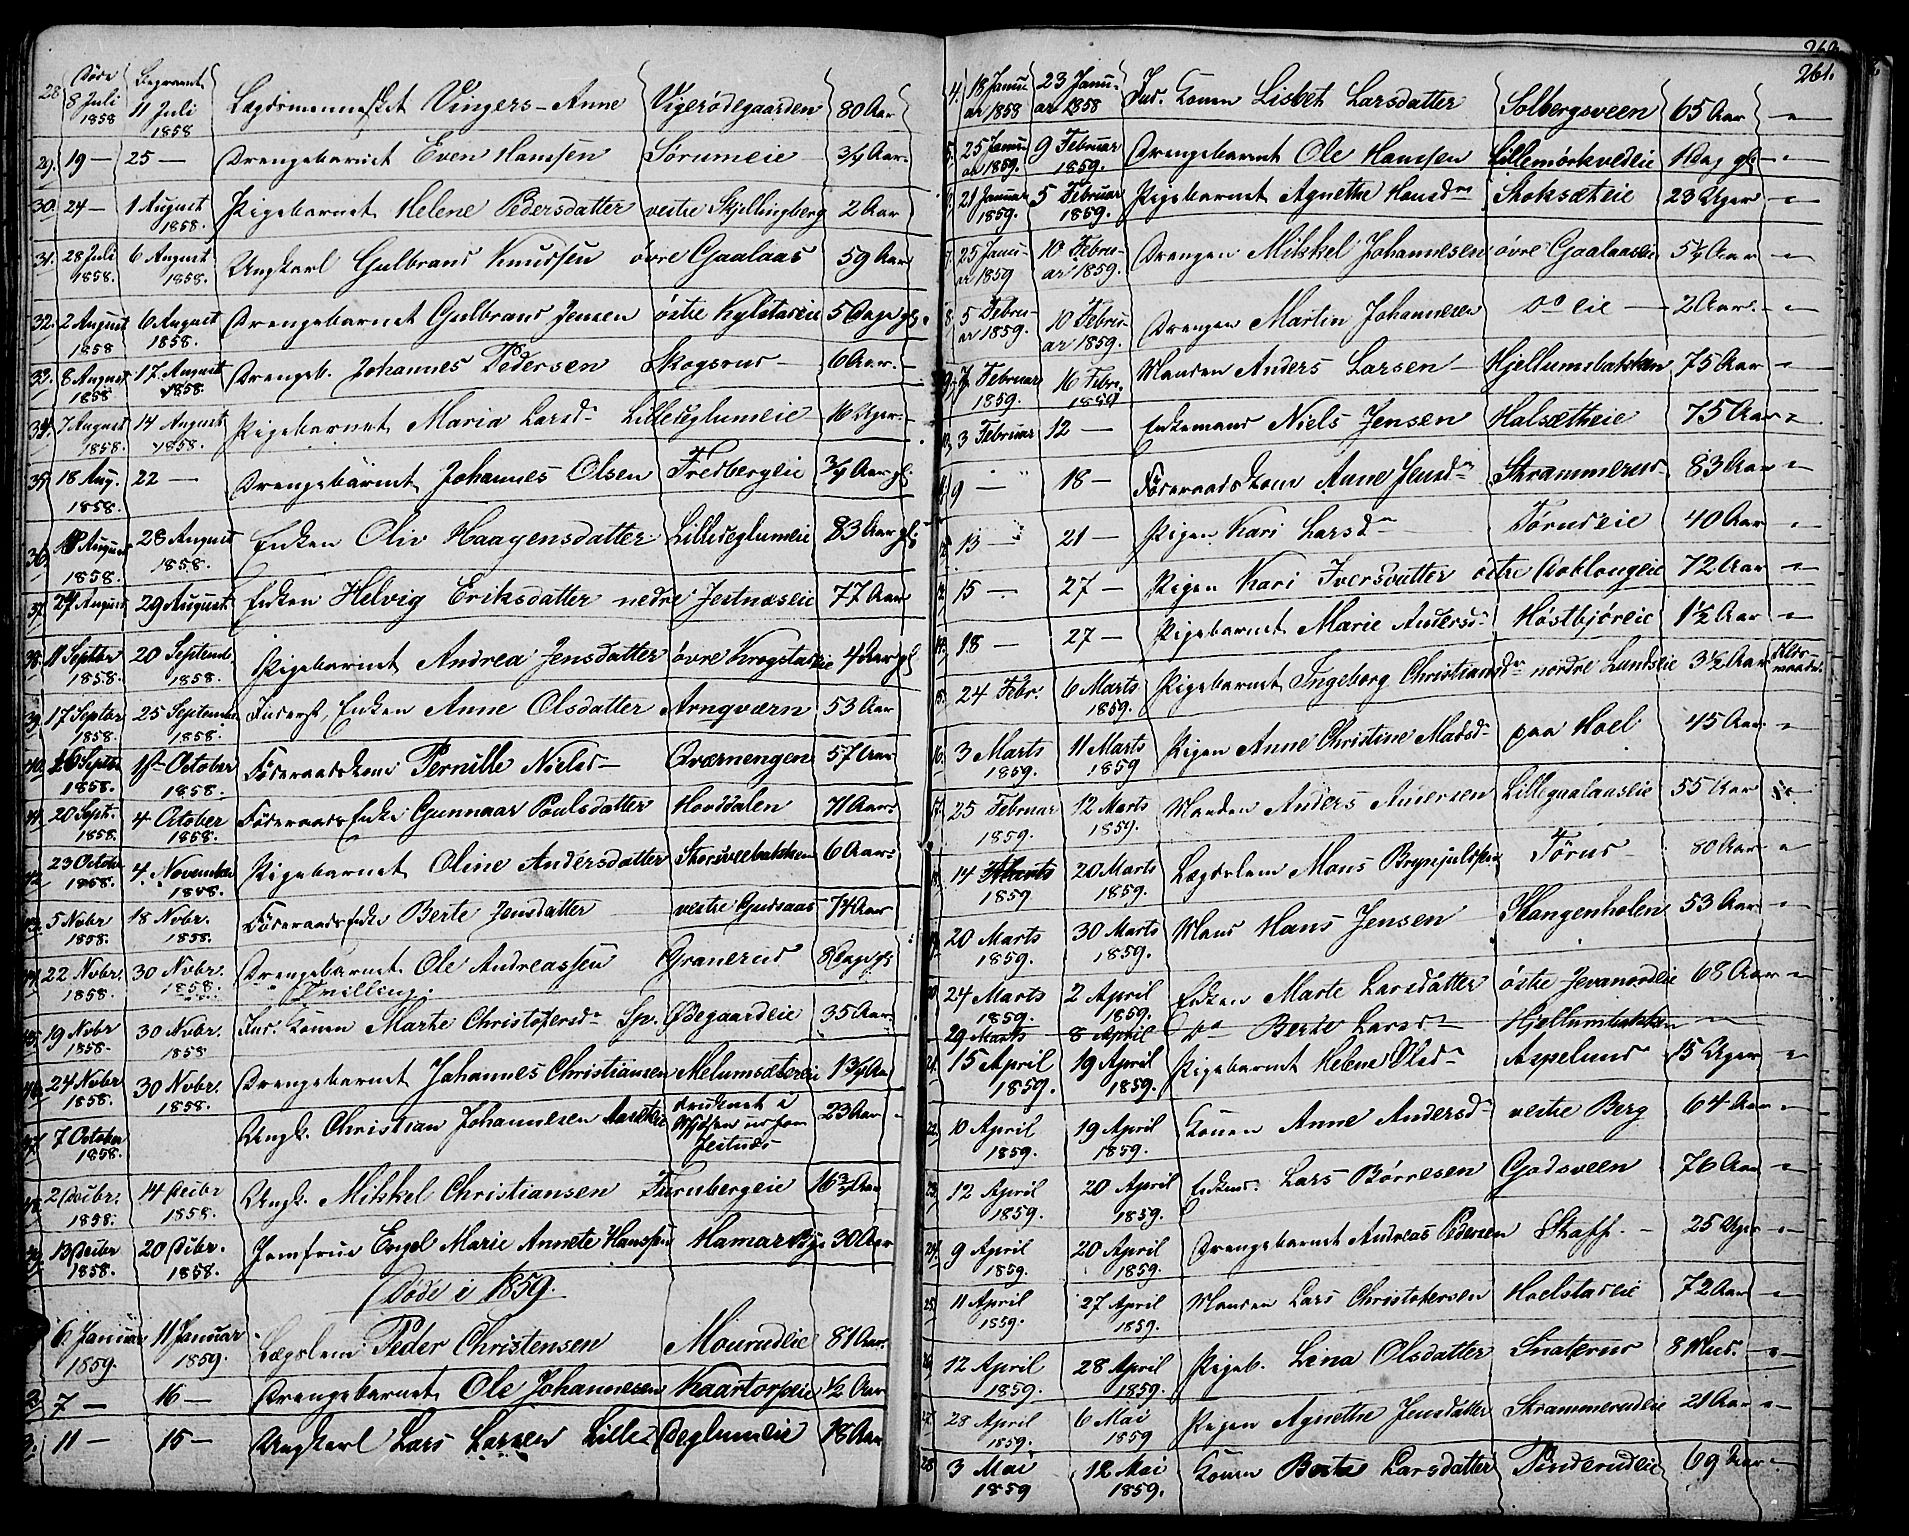 Døde Begravet
28 8 Juli 1858 11 Juli 1858 Lægdsmennesket Vingers-Anne Vigerødegaarden 80 Aar
29. 19 — 25 — Drengebarnet Even Hansen Sørumeie 3/4 Aar
30. 24 — 1 August 1858. Pigebarnet Helene Pedersdatter vestre Skjellingberg 2 Aar
31. 28 Juli 1858. 6 August 1858. Ungkarl Gulbrand Knudsen øvre Gaalaas 59 Aar
32. 2 August 1858 6 August 1858. Drengebarnet Gulbrand Jensen østre Kylstadeie 5 Dage gl.
33. 8 August 1858 17 August 1858 Drengeb. Johannes Pedersen Skogsrud 6 Aar.
34. 7 August 1858. 14 August 1858. Pigebarnet Maria Larsd. Lilledeglumeie 16 Uger.
35. 18 Aug. 1858. 22 — Drengebarnet Johannes Olsen Fredbergeie 3/4 Aar gl
36. 18 August 1858. 28 August 1858. Enken Oliv Haagensdatter Lilledeglumeie 83 Aar gl.
37. 24 August 29 August Enken Helvig Eriksdatter nedre Jestnæseie 77 Aar
38. 11 Septbr 1858. 20 Septemb. 1858. Pigebarnet Andrea Jensdatter øvre Krogstadeie 4 Aar gl
39. 17 Septbr 1858. 25 Septembr 1858. Inderst, Enken Anne Olsdatter Arnqværn 53 Aar
40. 26 Septbr 1858. 1st October 1858. Føderaadskone Pernille Nielsd. Qværnengen 57 Aar
41. 20 Sept. 1858. 4 October 1858. Føderaads Enke Gunnaar Poulsdatter Hovddalen 71 Aar.
42. 23 Octobr 1858. 4. November 1858. Pigebarnet Oline Andersdatter Storsveebakken 6 Aar.
43. 5 Novbr 1858. 18 Novbr. 1858. Føderaads Enke Berte Jensdatter vestre Gudsaas 74 Aar
44. 22 Novbr. 1858. 30 Novbr. 1858. Drengebarnet Ole Andreassen Granerud 8 Dage gl
Tvilling.
45. 19 Novbr 1858. 30 Novbr. 1858 Ind. Konen Marte Christophersd. Sp. Ødegaardeie 35 Aar.
46. 24 Novbr 1858. 30 Novbr. 1858. Drengebarnet Johannes Christiansen Melumsætereie 1 3/4 Aar
47. 7 October 1858. Ungk. Christian Johannesen druknet i Mjøsen udfor Jestnæs 23 Aar
48. 2 Decbr. 1858. 14 Decbr 1858. Ungk. Mikkel Christiansen Furubergeie 16 3/4 Aar
49. 13 Decbr 1858. 20 Decbr. 1858. Jomfrue Engel Marie Annete Hanssen Hamar By 30 Aar
Døde i 1859.
6. Januar 1859. 11 Januar 1859. Lægslem Peder Christensen Mourudeie 81 Aar.
2. 7 — 16 — Drengebarnet Ole Johannesen Kaartorpeie 1/2 Aar
3. 11 — 15 — Ungkarl Lars Larsen Lille Deglumeie 18 Aar
261.
4. 18 Januar 1858 23 Januar 1858 Ind. Konen Lisbeth Larsdatter Solbergsveen 65 Aar "
5. 25 Januar 1859. 9 Februar 1859. Drengebarnet Ole Hanssen Lillemørkvedeie 1 Dag gl. "
21 Januar 1859. 5 Februar 1859. Pigebarnet Agnethe Hansdr Stoksæteie 23 Uger "
7. 25 Januar 1859 10 Februar 1859. Drengen Mikkel Johannesen øvre Gaalaaseie 5 1/4 Aar "
8. 5 Februar 1859. 10 Februar 1859. Drengen Martin Johannesen Do eie 2 Aar. "
9. 7 Februar 1859. 16 Febr. 1859 Manden Anders Larsen Hjellumsbakken 75 Aar "
3 Februar 12 — Enkemand Niels Jensen Halsætheie 75 Aar "
9 — 18 — Føderaadskone Anne Jensdr Strammerud 83 Aar "
13 — 21 — Pigen Kari Larsdr Tørudeie 40 Aar "
15 — 27 — Pigen Kari Iversdatter østre Aaklangeie 72 Aar "
18 — 27 — Pigebarnet Marie Andersdr Høstbjøreie 1 1/2 Aar "
15. 24 Febr. 6 Marts 1859. Pigebarnet Ingeborg Christiansdr nordre Lundseie 3 1/2 Aar
16. 3 Marts 1859. 11 Marts 1859 Pigen Anne Christine Madsdr paa Hoel 45 Aar "
17. 25 Februar 1859. 12 Marts 1859. Manden Anders Andersen Lillegaalaaseie 55 Aar
18. 14 Marts 1859 20 Marts 1859. Lægdslem Mons Brynjulfsen Tørud 80 Aar "
19. 20 Marts 1859. 30 Marts 1859. Mand Hans Jensen Slangenholen 53 Aar "
20. 24 Marts 1859. 2 April 1859. Enken Marte Larsdatter østre Jevanordeie 68 Aar "
29 Marts 8 April Do Berte Larsdr Hjellumbakken "
21. 15 April 1859. 19 April 1859. Pigebarnet Helene Olsdr Aspelund 15 Uger "
22. 10 April 1859. 19 April 1859. Konen Anne Andersdr vestre Berg 64 Aar "
23. 12 April 1859. 20 April 1859. Enkemd. Lars Børresen Godsveen 76 Aar "
24. 9 April 1859. 20 April 1859. Drengebarnet Andreas Pedersen Staff. 25 Uger "
25. 11 April 1859. 27 April 1859. Manden Lars Christophersen Hoelstadeie 72 Aar "
26. 12 April 1859. 28 April 1859. Pigeb. Lina Olsdatter Snaterud 8 Mnd. "
27. 28 April 1859. 6 Mai 1859 Pigen Agnethe Jensdatter Strammerudeie 21 Aar "
28 3 Mai 1859 12 Mai 1859. Konen Berte Larsdatter Finderudeie 69 Aar "